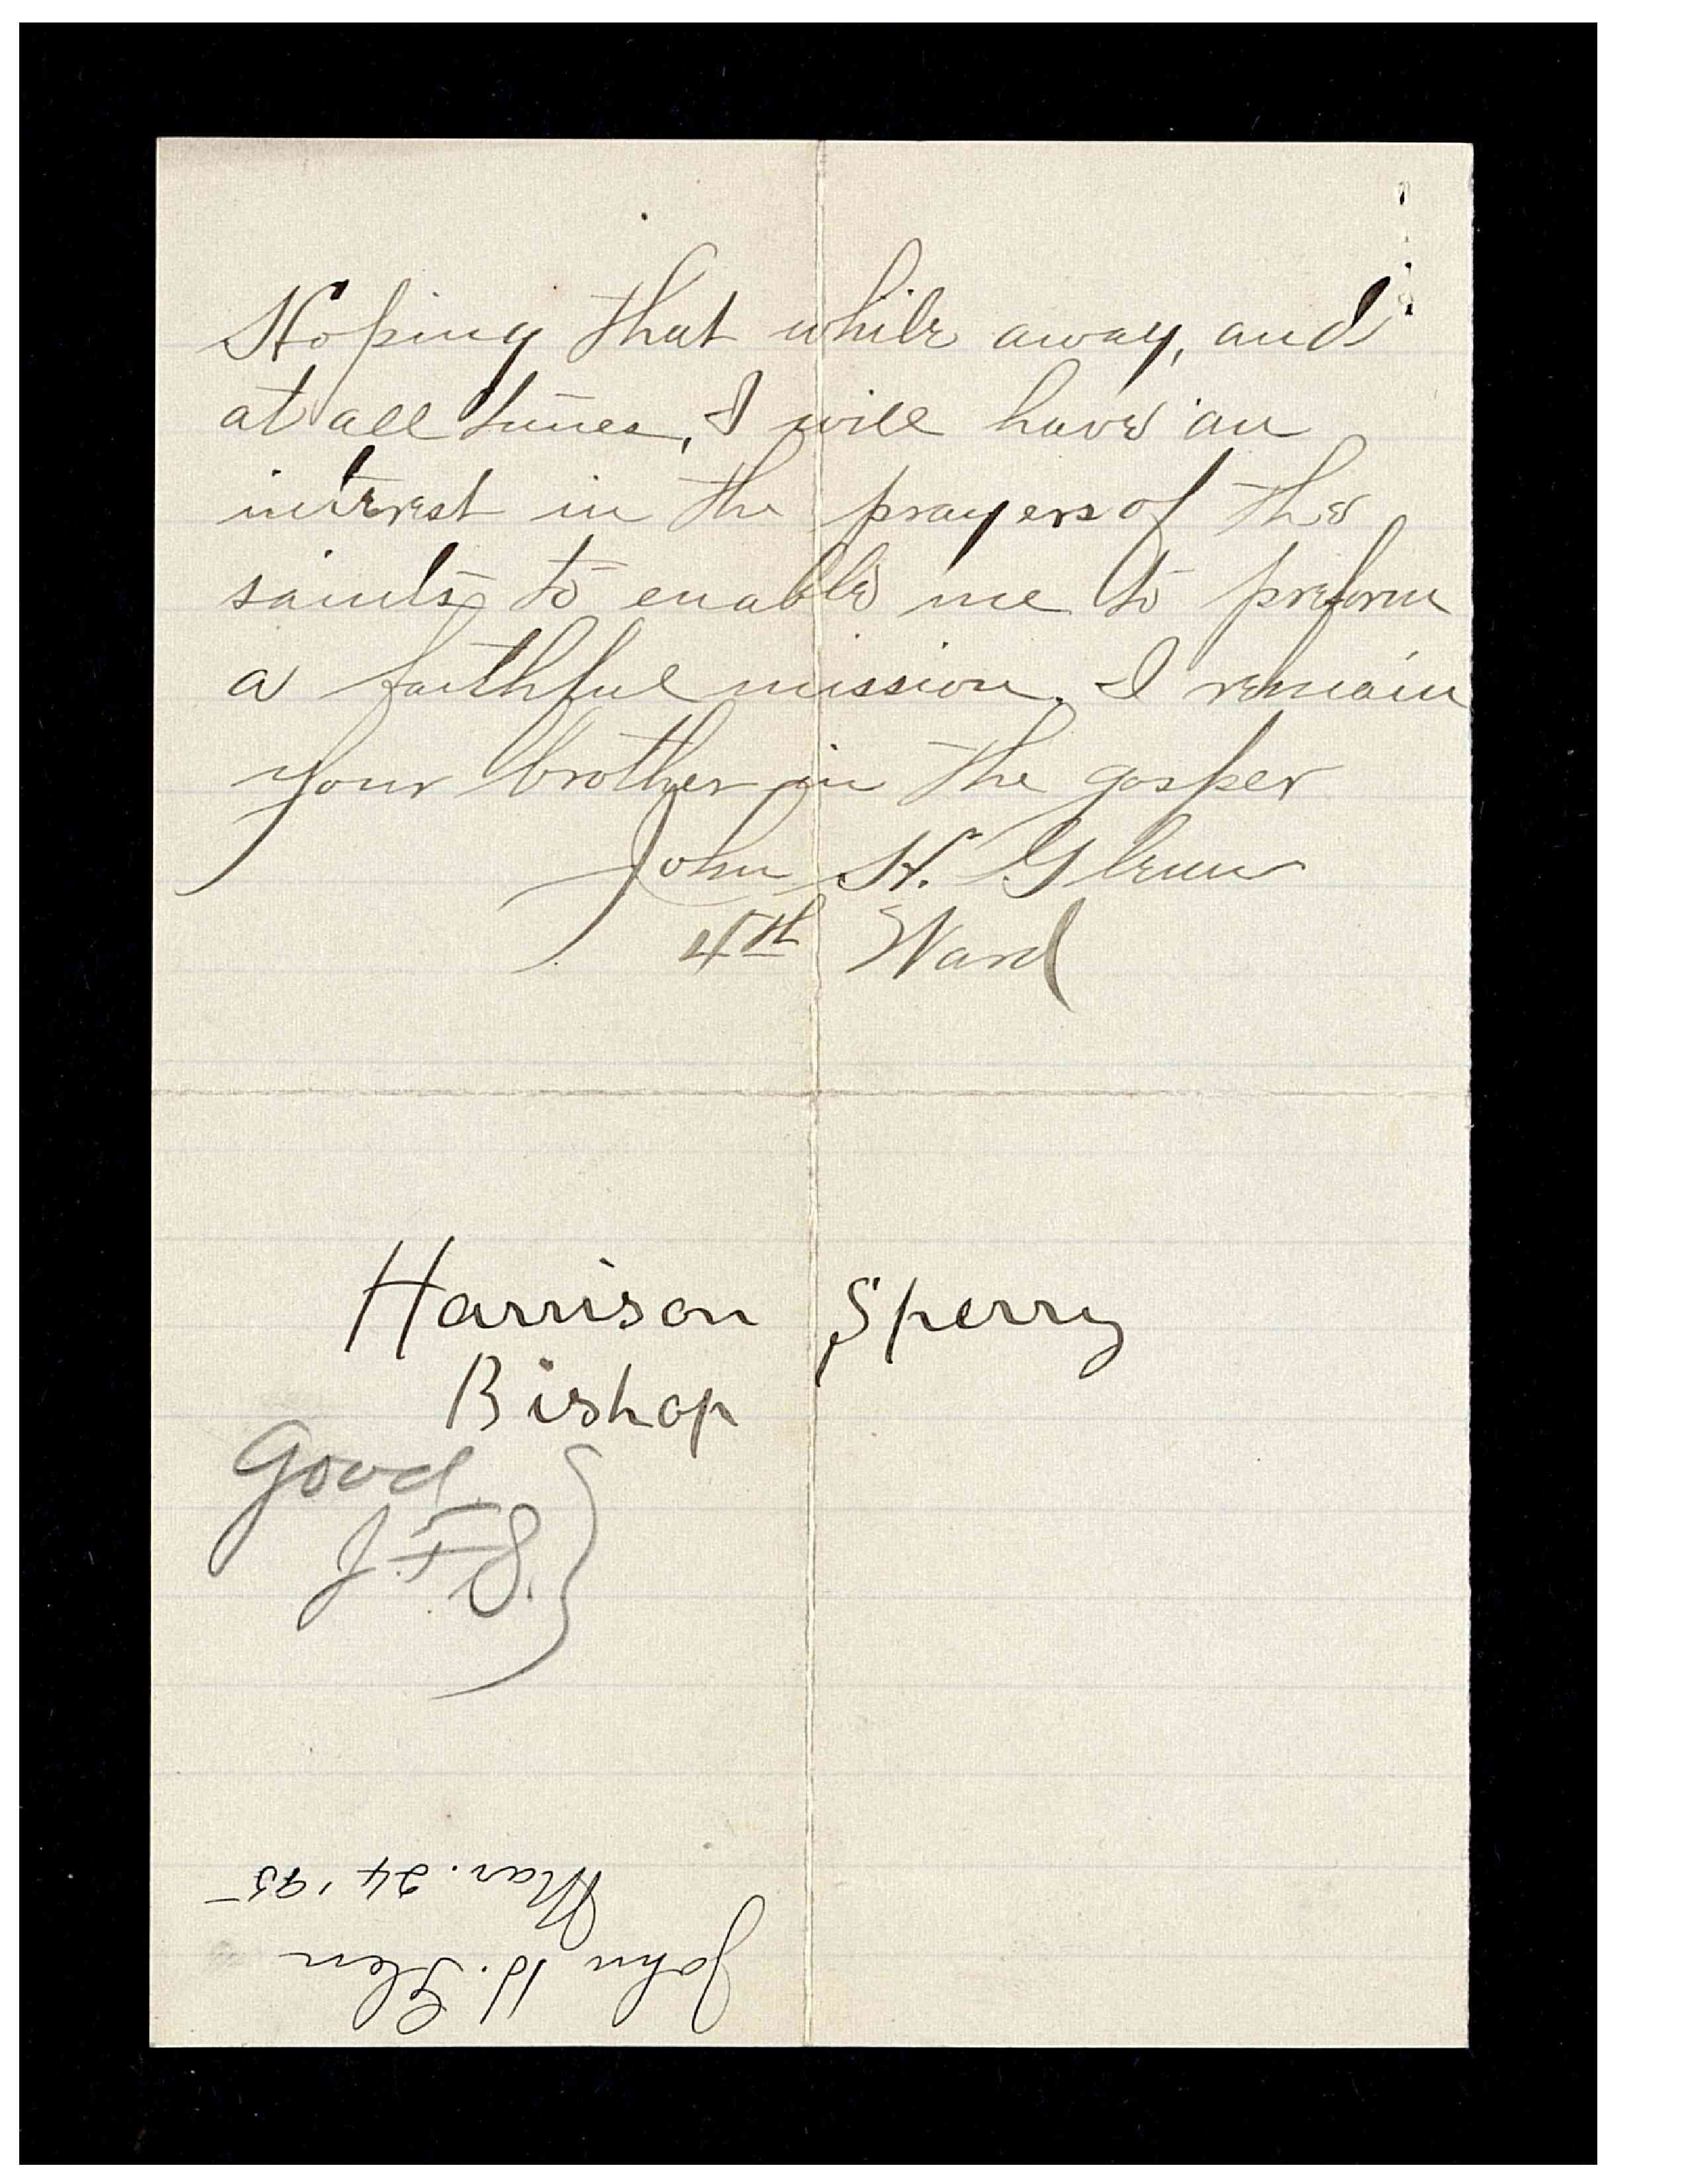 Hoping that while away, and
at all times, I will have an
interest in the prayers of the
saints to enable me to preform
a faithful mission. I remain
your brother in the gosper
John H. Glenn
4th Ward
Harrison Sperry
Bishop
Good
J. F. S.
John H. Glen
Mar. 24 '95